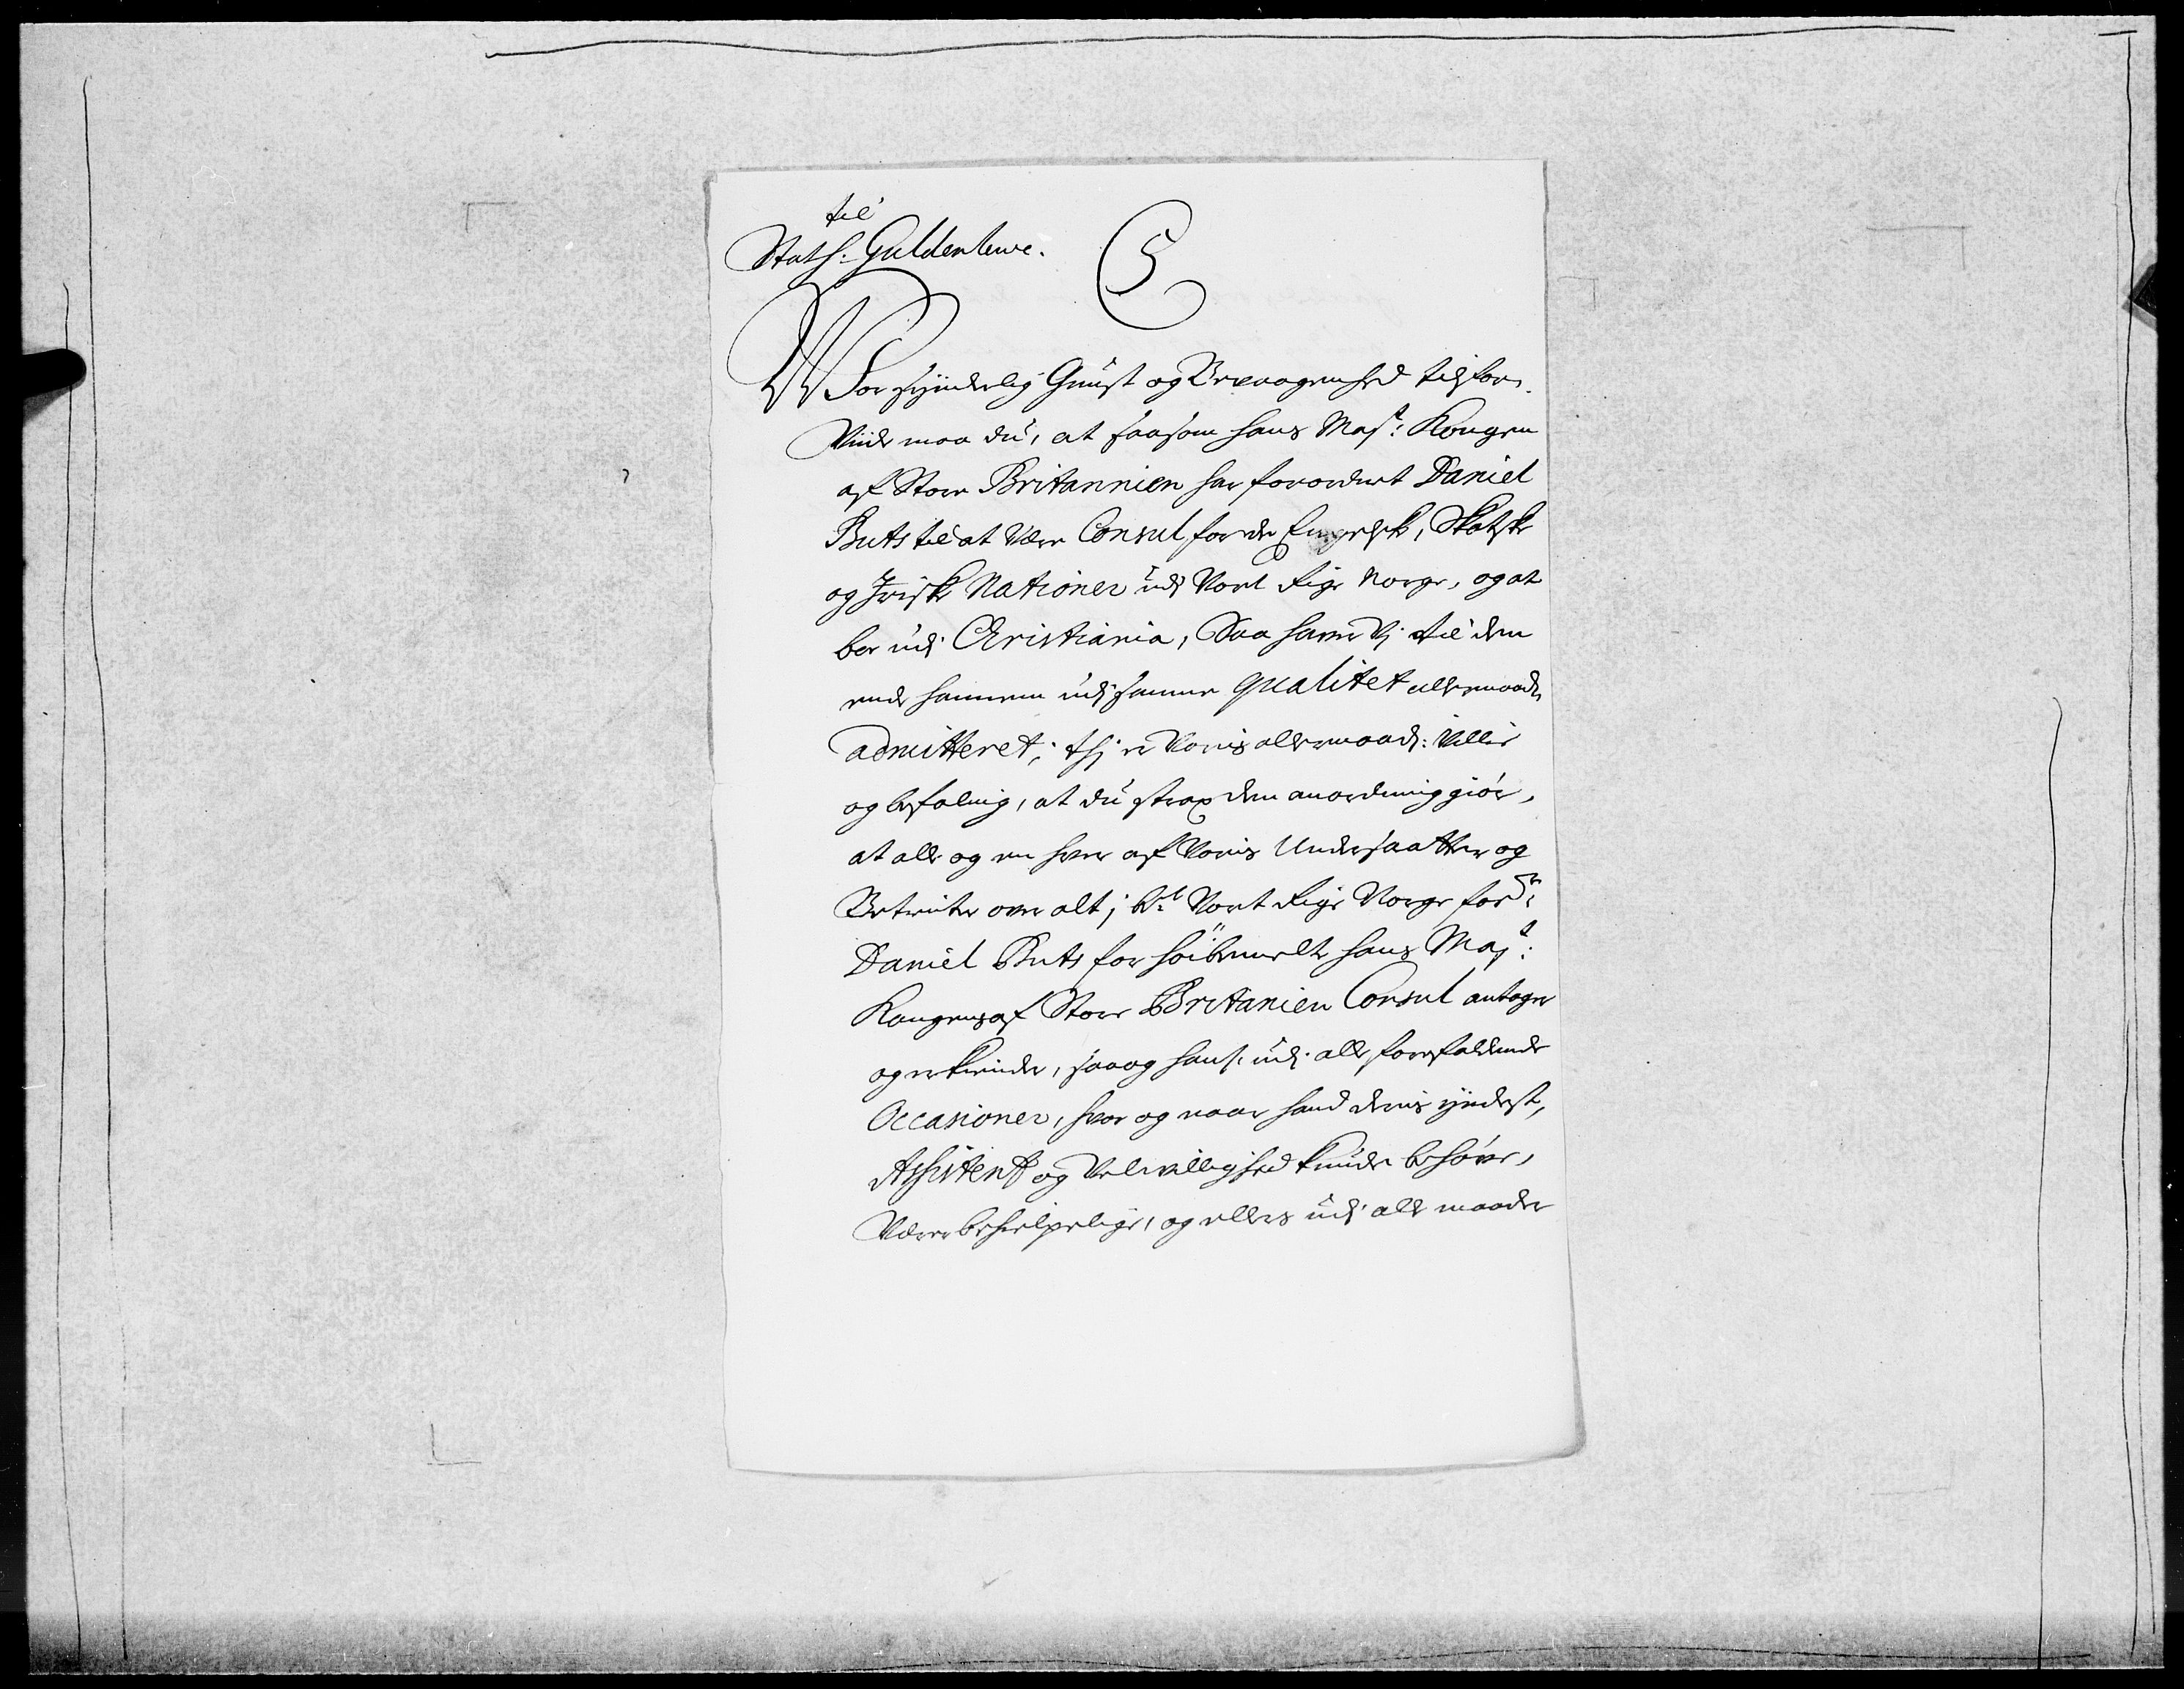 til
Stath: Guldenlewe.
C5
Wor synderlig Gunst og Bevaagenhed tilforn.
Viide maa du, at saasom hans Majt: Kongen
af Store Britannien har forordnet Daniel
Buts til at være Consul for de Engelske, Skotske
og Iriske Nationer udj Vort Rige Norge, og at
boe udj Christiania, Saa hawer Vj til den
ende hannem udj samme qualitet allernaadst
admitteret; thj er Voris allernaadst: Villie
og befaling, at du strax den anordning giör,
at alle og en hver af Voris Undersaatter og
Betiente over alt j bte Vort Rige Norge for:ne
Daniel Buts for höibemelte hans Majt:
Kongens af Store Britanien Consul antager
og erkiender, saa og ham udj alle forefaldende
Occasioner, hvor og naar hand deris yndest,
Assistentz og Velvillighed kunde behöve,
Være behielpelige, og ellers udj alle maader